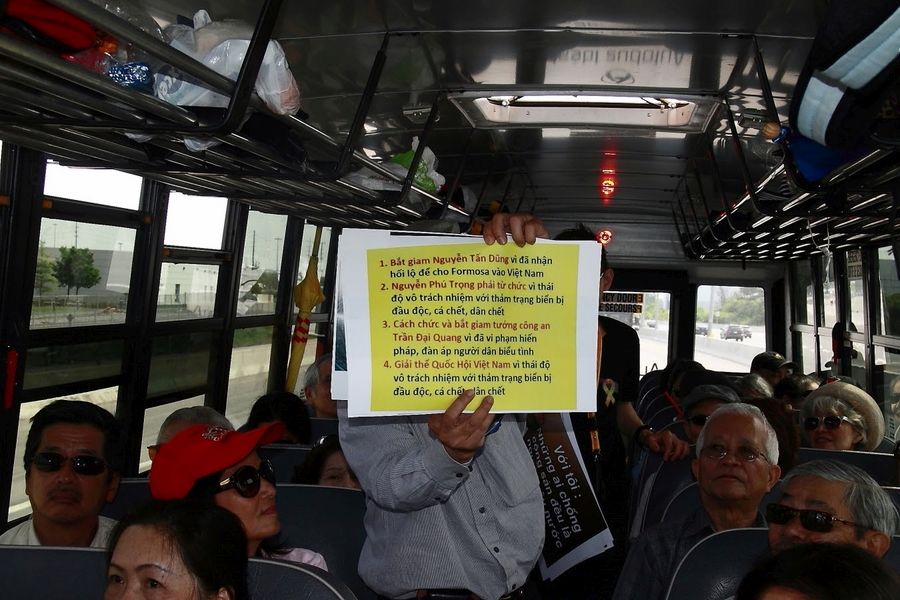 Autobus Ideal
1. Bắt giam Nguyễn Tấn Dũng vì đã nhận
hối lộ để cho Formosa vào Việt Nam
2. Nguyễn Phú Trọng phải từ chức vì thái
độ vô trách nhiệm với thảm trạng biển bị
đầu độc, cá chết, dân chết
3. Cách chức và bắt giam tướng công an
Trần Đại Quang vì đã vi phạm hiến
pháp, đàn áp người dân biểu tình
4. Giải thể Quốc Hội Việt Nam vì thái độ
vô trách nhiệm với thảm trạng biển bị
đầu độc, cá chết, dân chết
CY DOOR
SECOURS
Với tôi :
ai chống
cộng sản đều là
nước